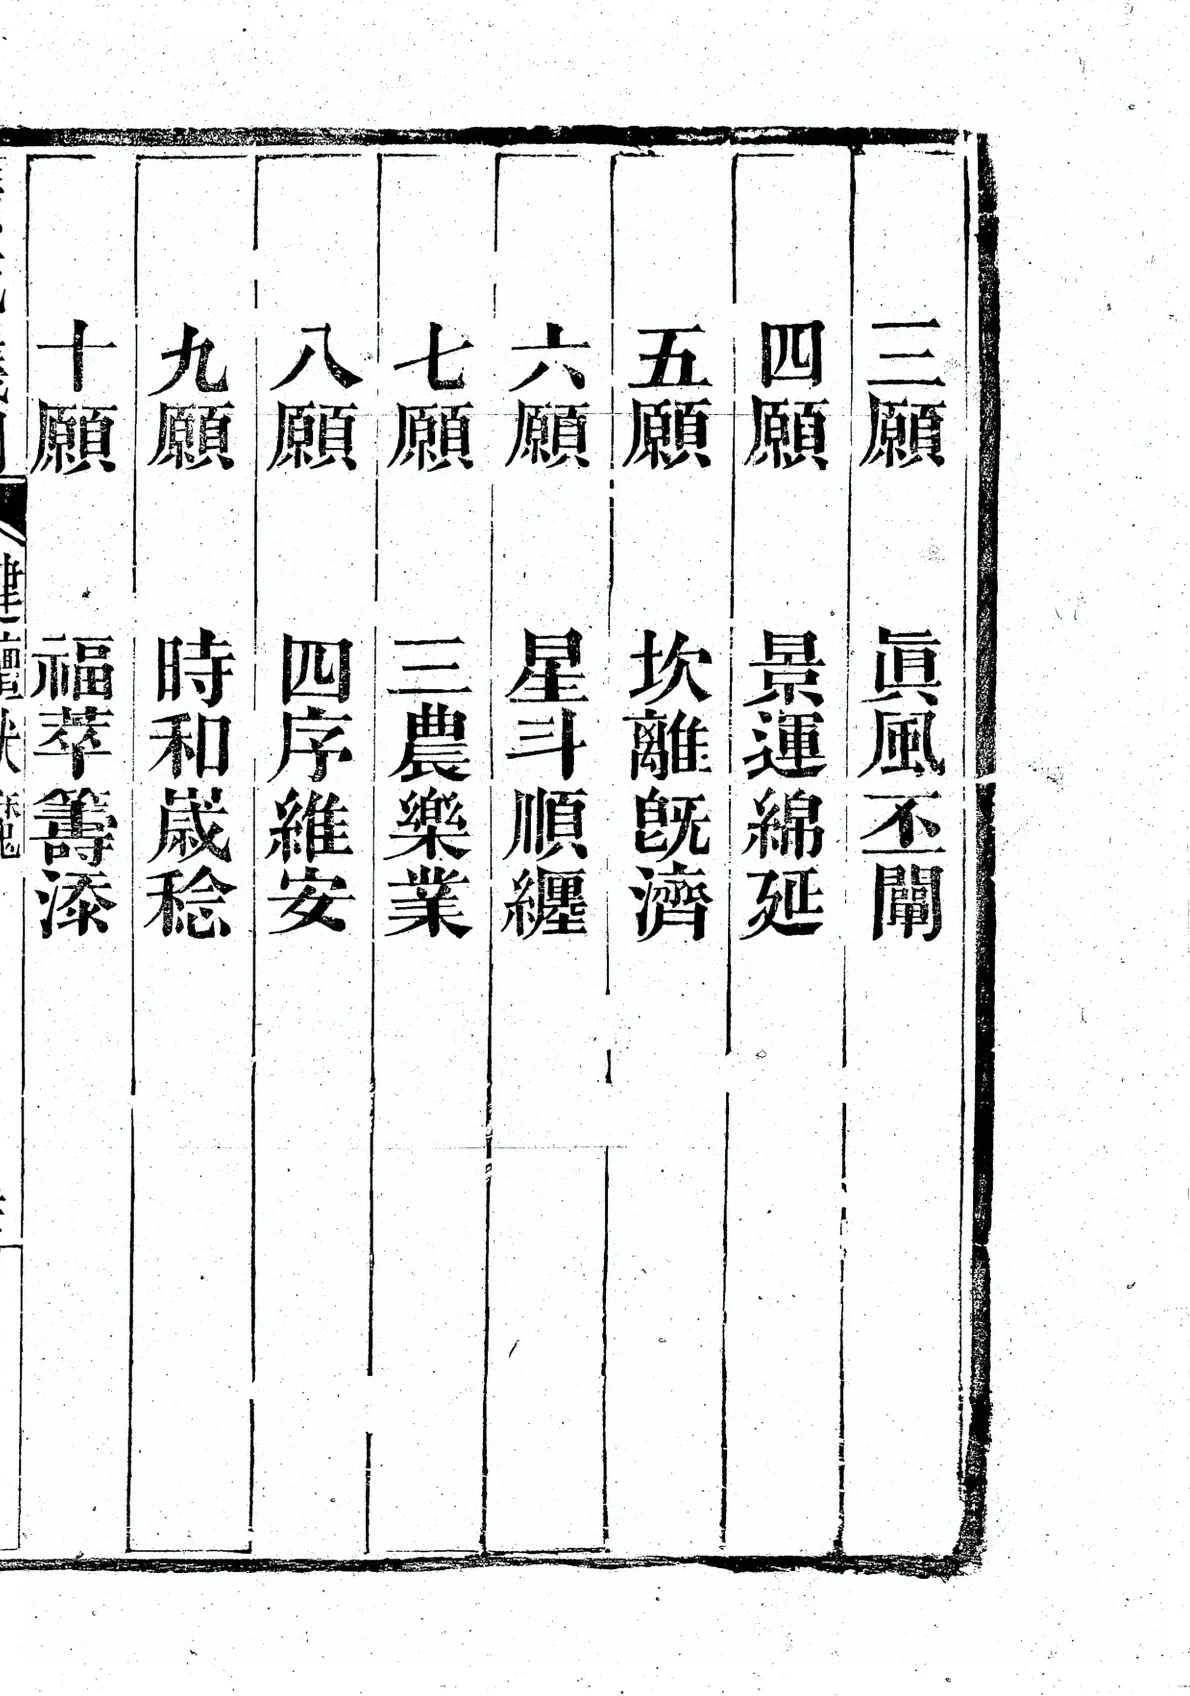 三願 眞風丕闡
四願 景運綿延
五願 坎離旣濟
六願 星斗順纏
七願 三農樂業
八願 四序維安
九願 時和歲稔
十願 福萃籌添